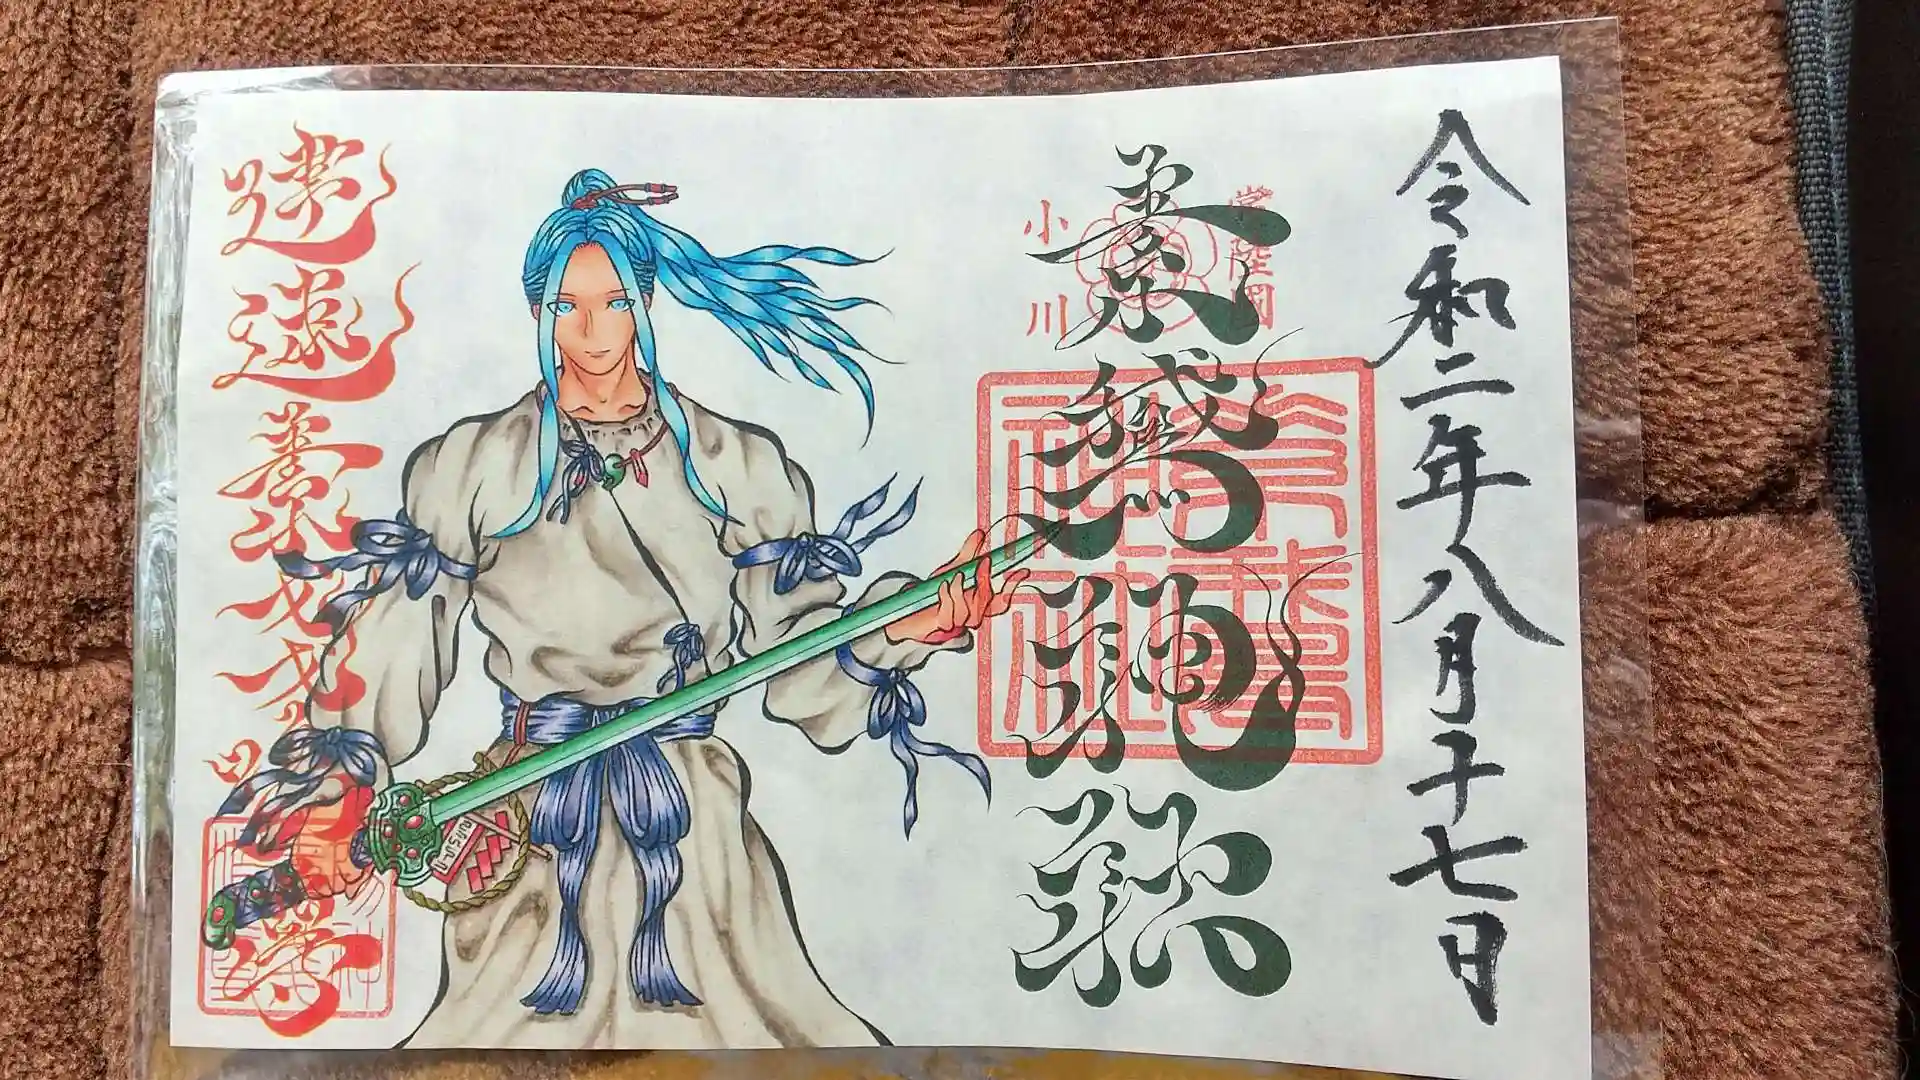 令和二年八月十七日
常陸国
素鵞神社
小川
素鵞
神社
建速素戔嗚尊